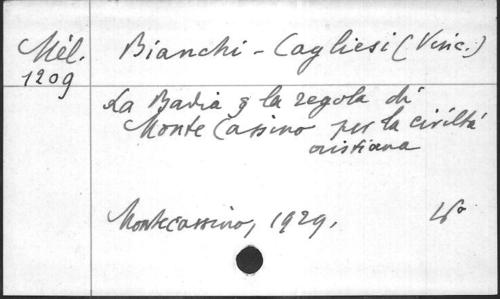 Mél. Bianchi-Cagliesi (Vinc.)
1209
La Badia & la regola di
Monte Cassino per la civiltá
cristiana
Montecassino, 1929. 16°